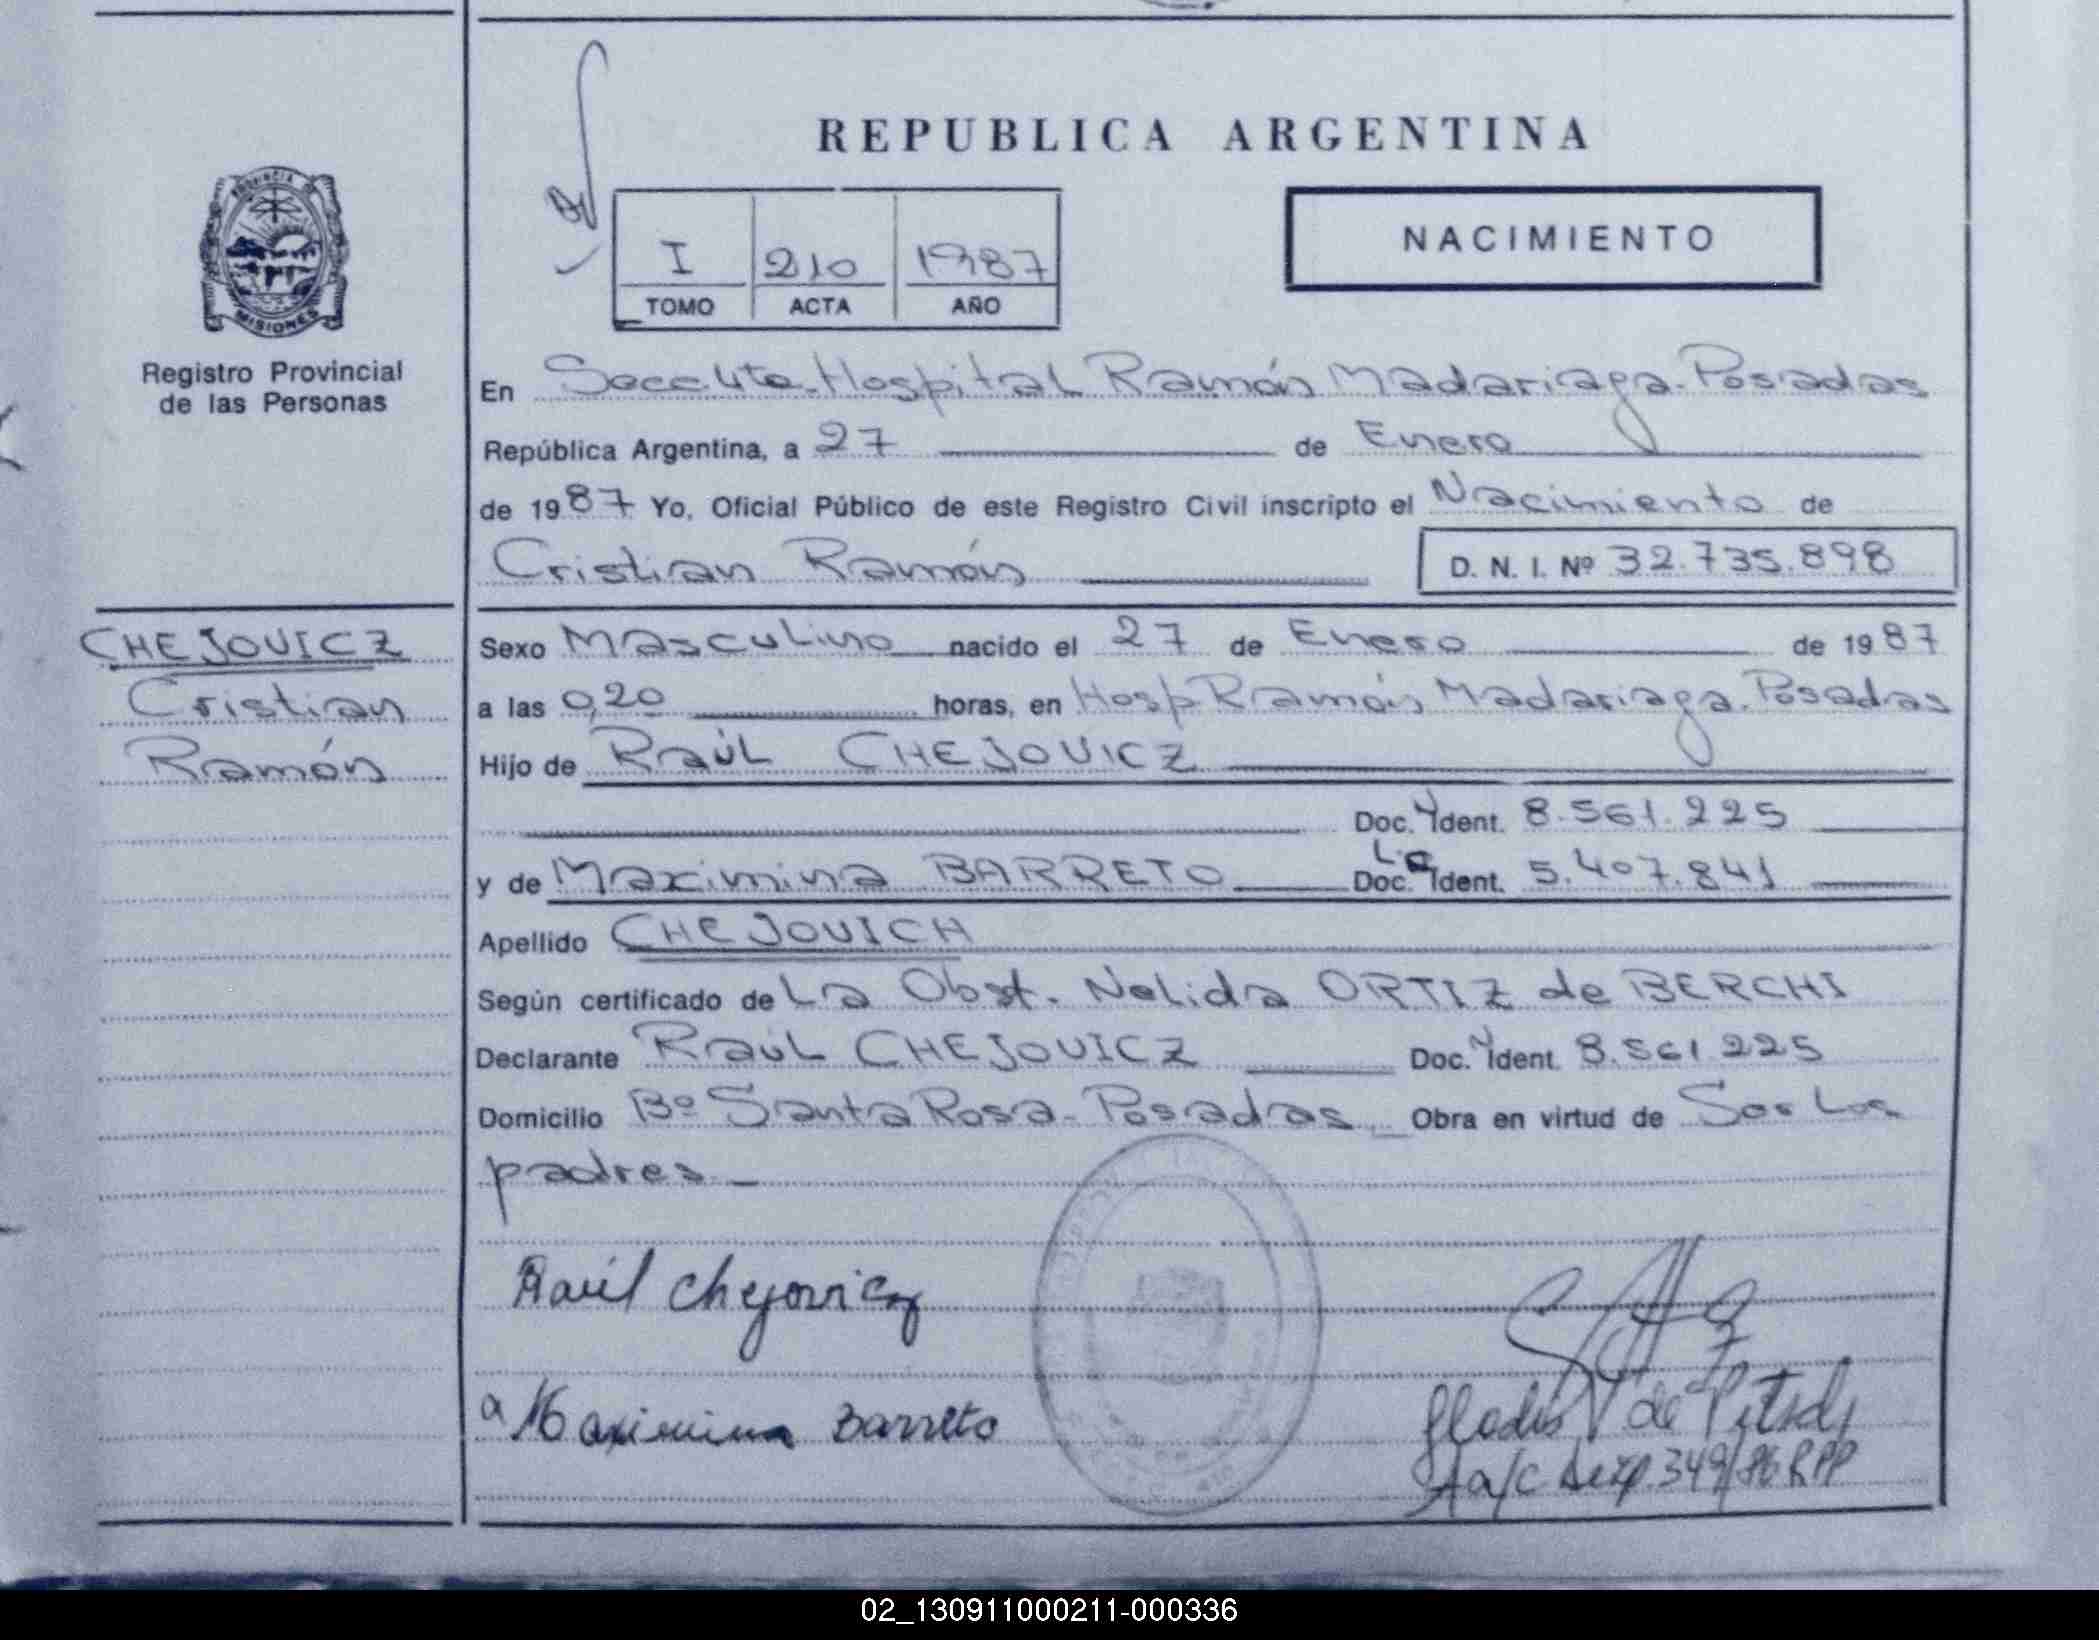 REPUBLICA ARGENTINA
NACIMIENTO
I 210 1987
TOMO ACTA AÑO
PROVINCIA DE
MISIONES
Registro Provincial
de las Personas
CHEJOVICZ
Cristian
Ramón
En Secc 4ta. Hospital Ramón Madariaga. Posadas
República Argentina, a 27 de Enero
de 1987 Yo, Oficial Público de este Registro Civil inscripto el Nacimiento de
Cristian Ramón D. N. I. Nº 32.735.898
Sexo Masculino nacido el 27 de Enero de 1987
a las 0,20 horas, en Hosp Ramón Madariaga. Posadas
Hijo de Raúl CHEJOVICZ
Doc. Ident. 8.561.225
y de Maximina BARRETO Doc. Ident. 5.407.841
Apellido CHEJOVICH
Según certificado de La Obst. Nelida ORTIZ de BERCHI
Declarante Raúl CHEJOVICZ Doc. Ident. 8.561.225
Domicilio Bº Santa Rosa - Posadas Obra en virtud de Ser Los
padres
Raúl Chejovicz
Maximina Barreto
a/c 349/86 RPP
02_130911000211-000336